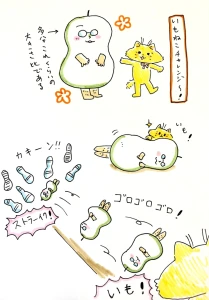 いもねこチャレンジ〜!
多分これくらいの
大きさ比である
いも!
カキーン!!
ゴロゴロゴロ!
ストライク!
いも!